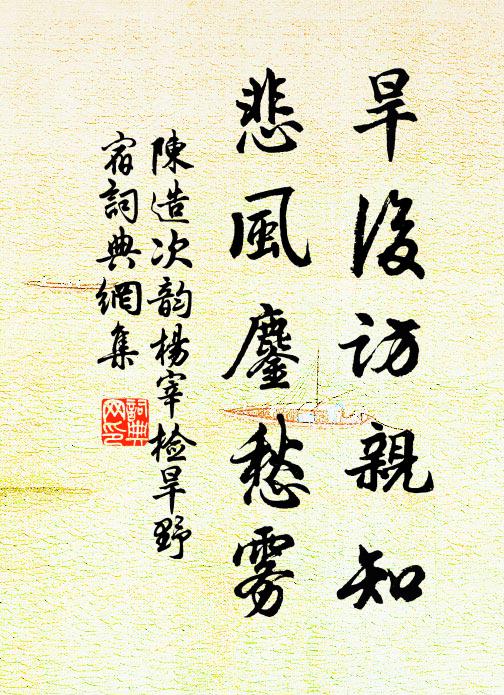 旱後访親知
悲風鏖愁雾
陳造次韵楊宰检旱野
宿詞典網集
詞典
网印